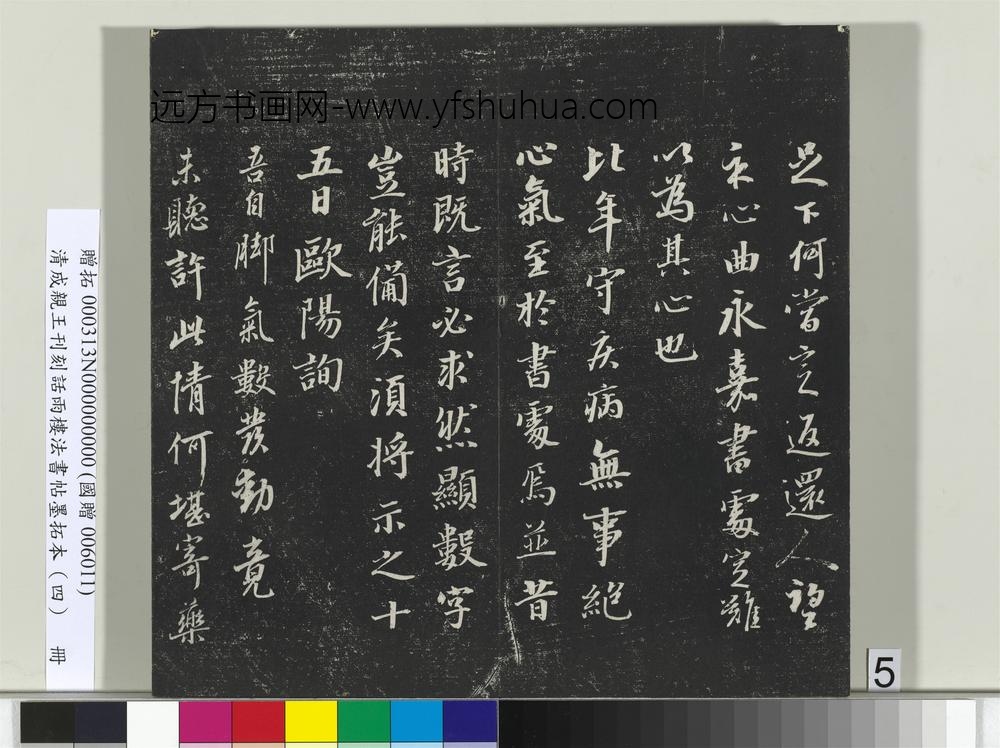 远方书画网-www.yfshuhua.com
足下何當定返還人望
示心曲永嘉書處定難
以為其心也
比年守疾病無事絕
心氣至於書處焉並昔
時既言必求然顯數字
豈能備矣須將示之十
五日歐陽詢
吾自脚氣數發動竟
未聽許此情何堪寄藥
贈拓 000313N000000000 (國贈 006011)
清成親王刊刻話雨樓法書帖墨拓本（四） 冊
5